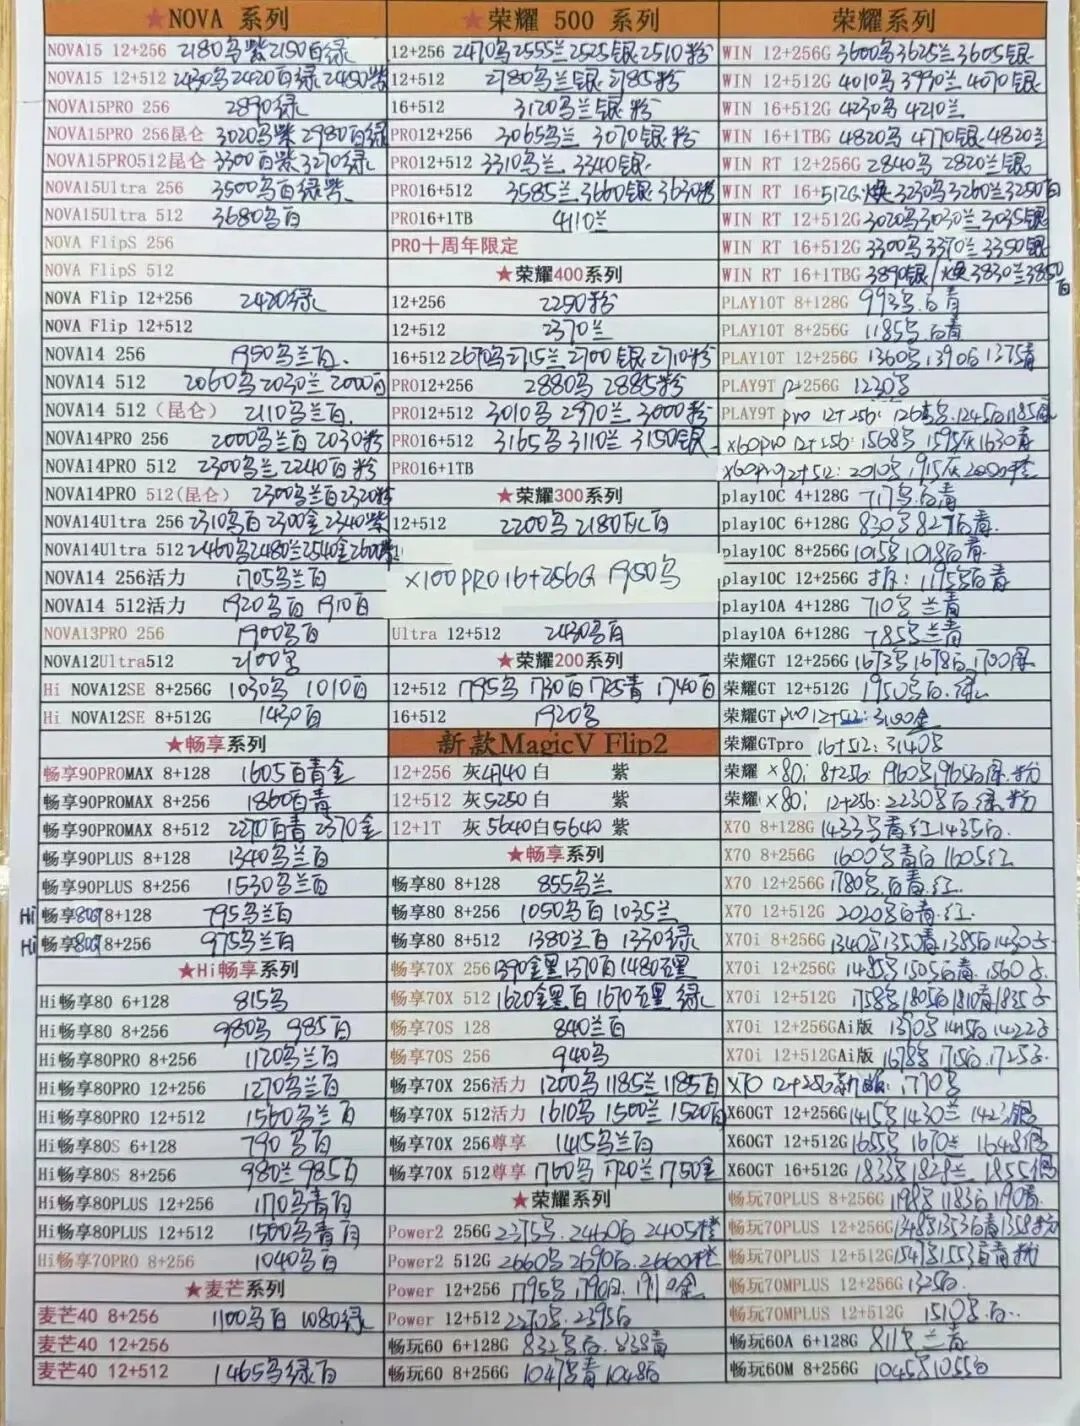 ★NOVA 系列
NOVA15 12+256 2180乌紫2150白绿
NOVA15 12+512 2430乌2420白绿2450紫
NOVA15PRO 256 2890绿
NOVA15PRO 256昆仑 3020乌紫 2980白绿
NOVA15PRO512昆仑 3300白紫3270绿
NOVA15Ultra 256 3500乌白绿紫
NOVA15Ultra 512 3680乌白
NOVA FlipS 256
NOVA FlipS 512
NOVA Flip 12+256 2420绿
NOVA Flip 12+512
NOVA14 256 1950乌兰白
NOVA14 512 2060乌2030兰2000白
NOVA14 512（昆仑） 2110乌兰白
NOVA14PRO 256 2000乌兰白 2030粉
NOVA14PRO 512 2300乌兰2240白粉
NOVA14PRO 512(昆仑） 2300乌兰白2320粉
NOVA14Ultra 256 2310乌白2300金2340紫
NOVA14Ultra 512 2460乌2480兰2540金2600
NOVA14 256活力 1705乌兰白
NOVA14 512活力 1920乌白 1910白
NOVA13PRO 256 1900乌白
NOVA12Ultra512 2100乌
Hi NOVA12SE 8+256G 1030乌 1010白
Hi NOVA12SE 8+512G 1430白
★畅享系列
畅享90PROMAX 8+128 1605白青金
畅享90PROMAX 8+256 1860白青
畅享90PROMAX 8+512 2270白青 2370金
畅享90PLUS 8+128 1340乌兰白
畅享90PLUS 8+256 1530乌兰白
Hi 畅享80 8+128 795乌兰白
Hi 畅享80 8+256 975乌兰白
★Hi畅享系列
Hi畅享80 6+128 815乌
Hi畅享80 8+256 980乌 985白
Hi畅享80PRO 8+256 1120乌兰白
Hi畅享80PRO 12+256 1270乌兰白
Hi畅享80PRO 12+512 1560乌兰白
Hi畅享80S 6+128 790乌白
Hi畅享80S 8+256 980兰985白
Hi畅享80PLUS 12+256 1170乌青白
Hi畅享80PLUS 12+512 1500乌青白
Hi畅享70PRO 8+256 1040乌白
★麦芒系列
麦芒40 8+256 1100乌白 1080绿
麦芒40 12+256
麦芒40 12+512 1465乌绿白
★荣耀 500 系列
12+256 2470乌2555兰2525银2510粉
12+512 2780乌兰银 2785粉
16+512 3120乌兰银粉
PRO12+256 3065乌兰 3070银粉
PRO12+512 3310乌兰 3340银
PRO16+512 3585兰3660银3630粉
PRO16+1TB 4110兰
PRO十周年限定
★荣耀400系列
12+256 2250粉
12+512 2370兰
16+512 2670乌2715兰2700银2710粉
PRO12+256 2880乌 2885粉
PRO12+512 3010乌 2970兰 3000粉
PRO16+512 3165乌3110兰 3150银
PRO16+1TB
★荣耀300系列
12+512 2200乌2180灰白
X100PRO 16+256G 1950乌
Ultra 12+512 2430乌白
★荣耀200系列
12+512 1795乌1730白1735青1740白
16+512 1920乌
新款MagicV Flip2
12+256 灰4740白 紫
12+512 灰5250白 紫
12+1T 灰5640白5640 紫
★畅享系列
畅享80 8+128 855乌兰
畅享80 8+256 1050乌白 1035兰
畅享80 8+512 1380兰白1330绿
畅享70X 256 1390金黑1370白1480 黑
畅享70X 512 1620金黑白1670 黑绿
畅享70S 128 840兰白
畅享70S 256 940乌
畅享70X 256活力 1200乌1185兰1185白
畅享70X 512活力 1610乌1500兰1520白
畅享70X 256尊享 1415乌兰白
畅享70X 512尊享 1760乌1720兰1750金
★荣耀系列
Power2 256G 2375乌.2460白2405橙
Power2 512G 2660乌2690白.2660橙
Power 12+256 1795乌1790白.1910金
Power 12+512 2270乌.2395白
畅玩60 6+128G 832乌白.838青
畅玩60 8+256G 1047乌青1048白
荣耀系列
WIN 12+256G 3600乌3625兰3605银
WIN 12+512G 4010乌3990兰4070银
WIN 16+512G 4230乌4210兰
WIN 16+1TBG 4820乌4770银4820兰
WIN RT 12+256G 2840乌 2820兰银
WIN RT 16+512G 焕3230乌3260兰3250白
WIN RT 12+512G 3020乌3030兰3035银
WIN RT 16+512G 3300乌3370兰3350银
WIN RT 16+1TBG 3890银/焕3830兰3850白
PLAY10T 8+128G 993乌.白青
PLAY10T 8+256G 1185乌.白青
PLAY10T 12+256G 1360乌1390白1375青
PLAY9T 12+256G 1230乌
PLAY9T pro 12+256: 1245白1185
X60pro 12+256: 1568乌1595灰1630青
X60pro12+512: 2010乌1915灰2000橙
play10C 4+128G 717乌.白青
play10C 6+128G 830乌827白青
play10C 8+256G 1015乌1018白青
play10C 12+256G 1195乌白青
play10A 4+128G 710乌兰青
play10A 6+128G 785乌兰青
荣耀GT 12+256G 1673乌1678白1700绿
荣耀GT 12+512G 1950乌白.绿
荣耀GT pro 12+512: 3100金
荣耀GTpro 16+512: 3140乌
荣耀 X80i 8+256: 1960乌1965白绿.粉
荣耀 X80i 12+256: 2230乌白绿粉
X70 8+128G 1433乌青红1435白
X70 8+256G 1600乌青白1605红
X70 12+256G 1780乌.白青.红
X70 12+512G 2020乌白青.红
X70i 8+256G 1340乌1350青1385白1430
X70i 12+256G 1485乌1505白青.1560
X70i 12+512G 1758乌1805白1810青1835
X70i 12+256GAi版 1370乌1415白1422
X70i 12+512GAi版 1678乌1715白.1725
X70 12+256新版: 1770乌
X60GT 12+256G 1415乌1430兰 1423银
X60GT 12+512G 1655乌1670兰 1648银
X60GT 16+512G 1833乌1829兰.1855银
畅玩70PLUS 8+256G 1198乌1183白1190青
畅玩70PLUS 12+256G 1348乌1353白青1358粉
畅玩70PLUS 12+512G 1547乌1553白青粉
畅玩70MPLUS 12+256G 1325白
畅玩70MPLUS 12+512G 1510乌.白
畅玩60A 6+128G 811乌兰青
畅玩60M 8+256G 1045乌1055白